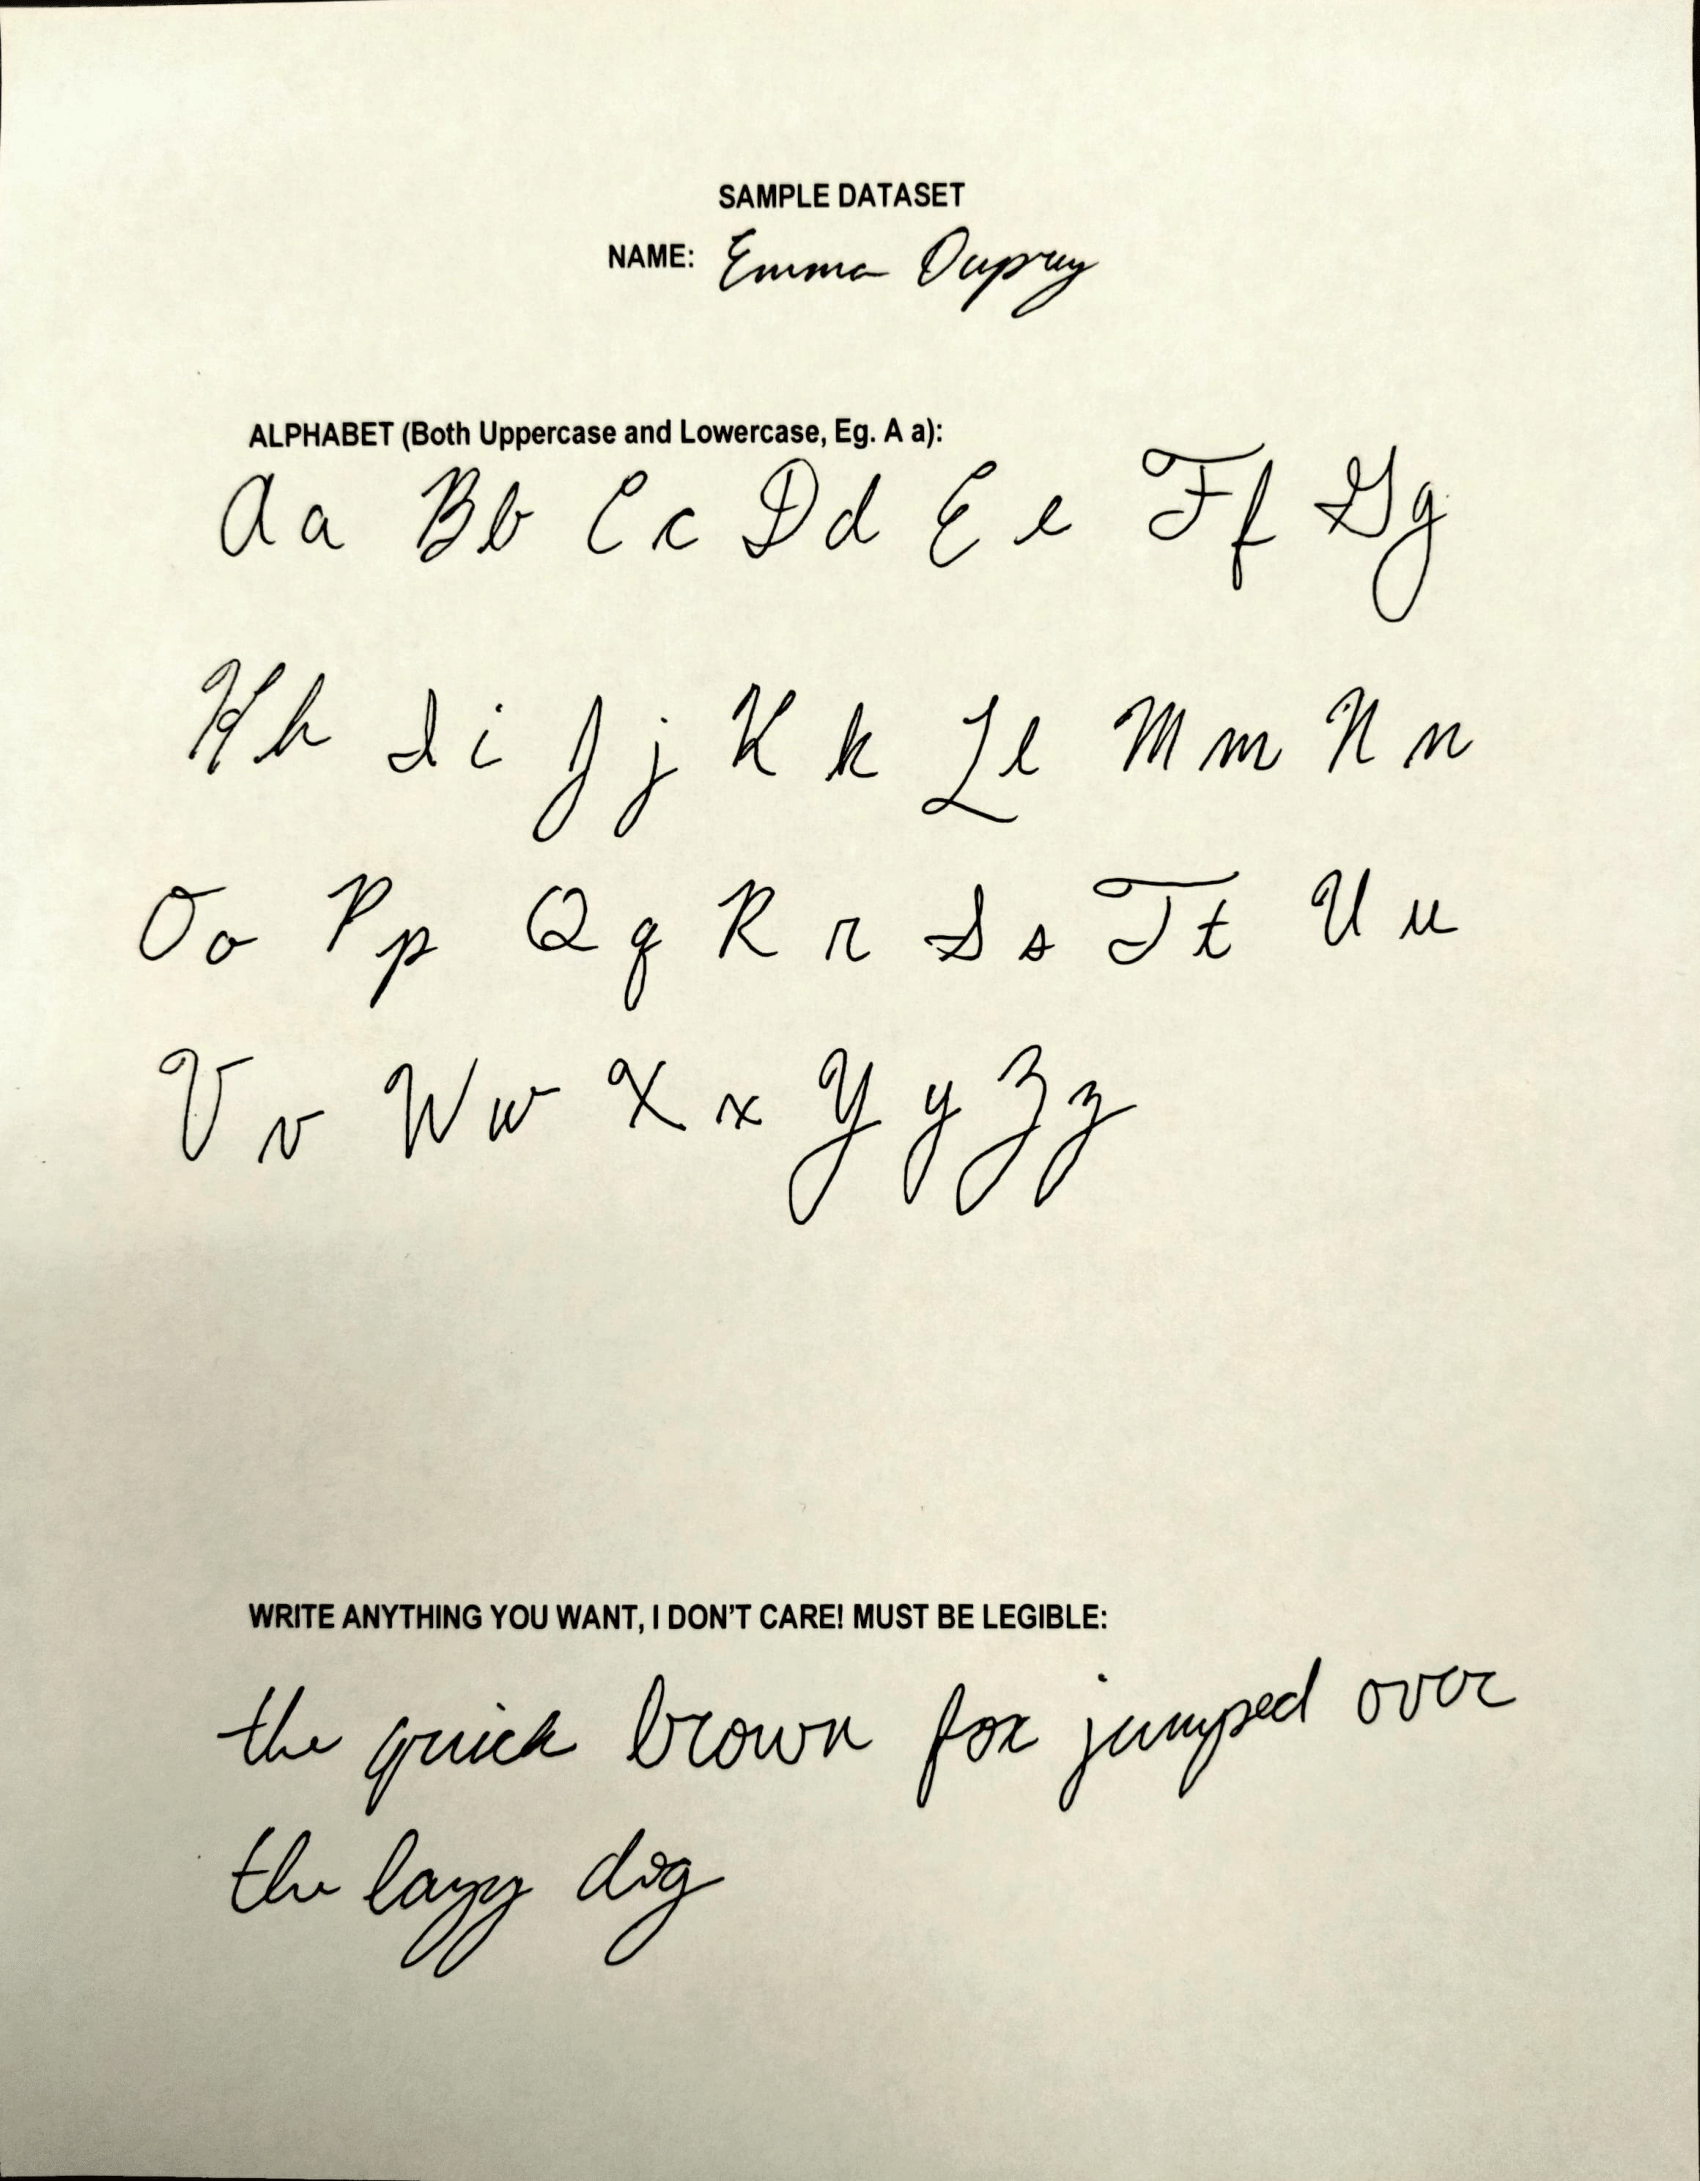 SAMPLE DATASET
NAME: Emma Duprey
ALPHABET (Both Uppercase and Lowercase, Eg. A a):
A a B b C c D d E e F f G g
H h I i J j K k L l M m N n
O o P p Q q R r S s T t U u
V v W w X x Y y Z z
WRITE ANYTHING YOU WANT, I DON'T CARE! MUST BE LEGIBLE:
the quick brown fox jumped over
the lazy dog